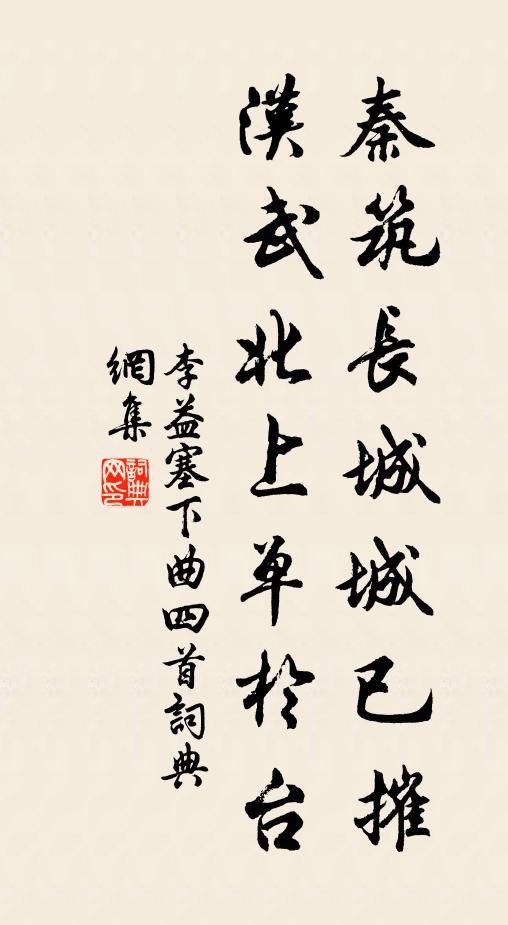 秦筑長城城已摧
漢武北上单於台
李益塞下曲四首詞典
網集
詞典
网印